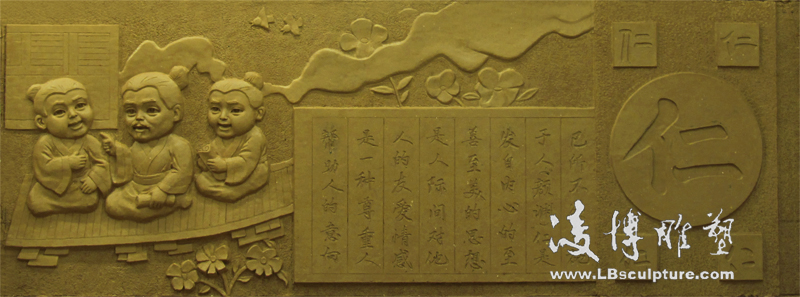 己所不
于人
發自內心的至
善至美的思想
是人际间对他
人的友愛情感
是一种尊重人
幫助人的意向
仁
仁
仁
凌博雕塑
www.LBsculpture.com